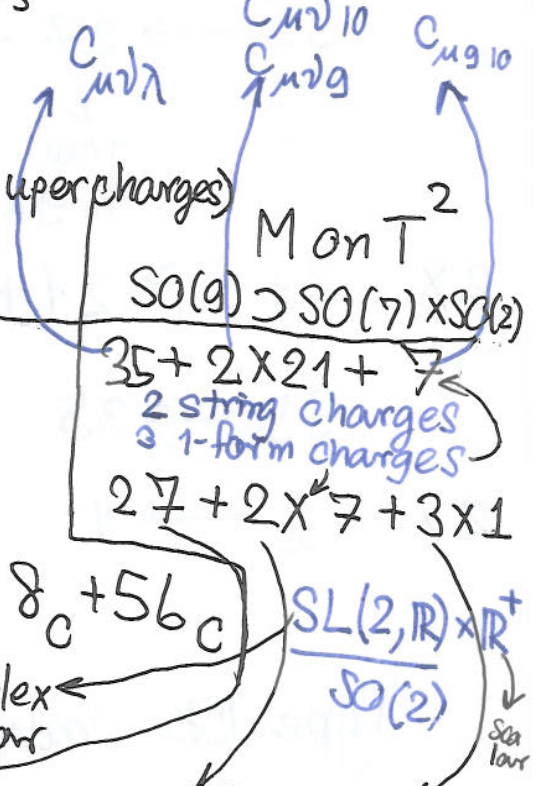 C_{μν10}
C_{μνλ} C_{μν9} C_{μ910}
upercharges)
M on T^2
SO(9) ⊃ SO(7) × SO(2)
35 + 2×21 + 7
2 string charges
3 1-form charges
27 + 2×7 + 3×1
8_C + 56_C
SL(2,ℝ) × ℝ^+
SO(2)
lex
ar
Sca
lar